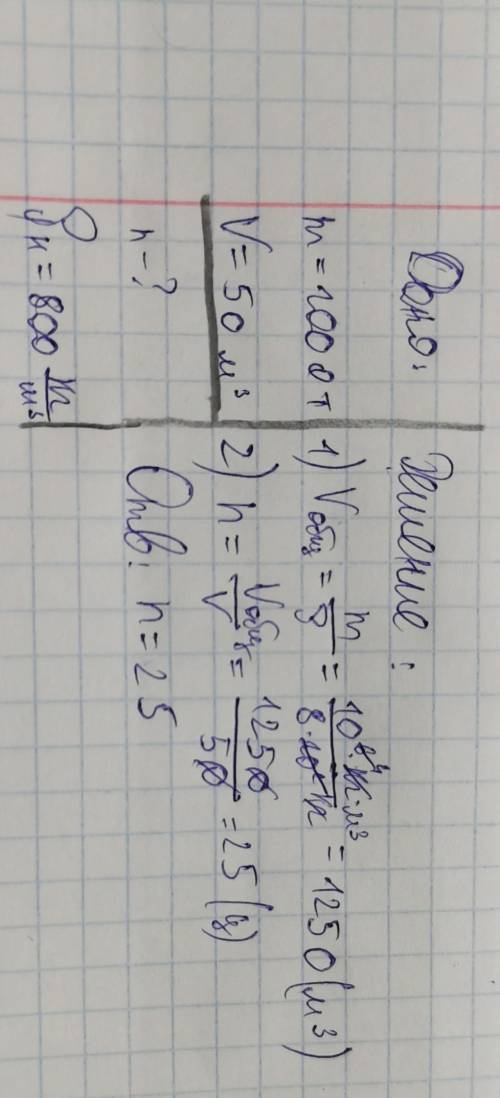 Дано:
m = 1000 т
V = 50 м³
n - ?
ρн = 800 кг/м³
Решение:
1) Vобщ = m/ρ = кг·м³/кг = 1250 (м³)
2) n = Vобщ/V = 1250/50 = 25 (ц)
Отв: n = 25